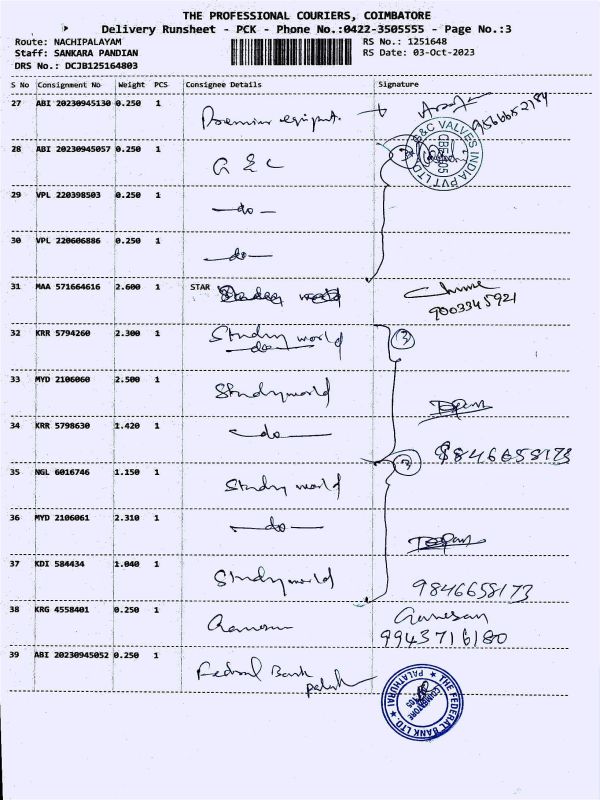 THE PROFESSIONAL COURIERS, COIMBATORE
Delivery Runsheet - PCK - Phone No.:0422-3505555 - Page No.:3
Route: NACHIPALAYAM
Staff: SANKARA PANDIAN
DRS No.: DCJB125164803
RS No.: 1251648
RS Date: 03-Oct-2023
S No Consignment No Weight PCS Consignee Details Signature
27 ABI 20230945130 0.250 1 Premium equipt. 9566652184
28 ABI 20230945057 0.250 1 G & C 3
B&C VALVES INDIA PVT LTD
29 VPL 220398503 0.250 1 —do—
30 VPL 220606886 0.250 1 —do—
31 MAA 571664616 2.600 1 STAR
9003345921
32 KRR 5794260 2.300 1 Study world 3
—do—
33 MYD 2106060 2.500 1 Study world
34 KRR 5798630 1.420 1 —do— 9846658173
35 NGL 6016746 1.150 1 Study world 3
36 MYD 2106061 2.310 1 —do—
37 KDI 584434 1.040 1 Study world 9846658173
38 KRG 4558401 0.250 1 Ganesan Ganesan
9943716180
39 ABI 20230945052 0.250 1 Federal Bank
THE FEDERAL BANK LTD. ★ PALATHURAI ★
COIMBATORE